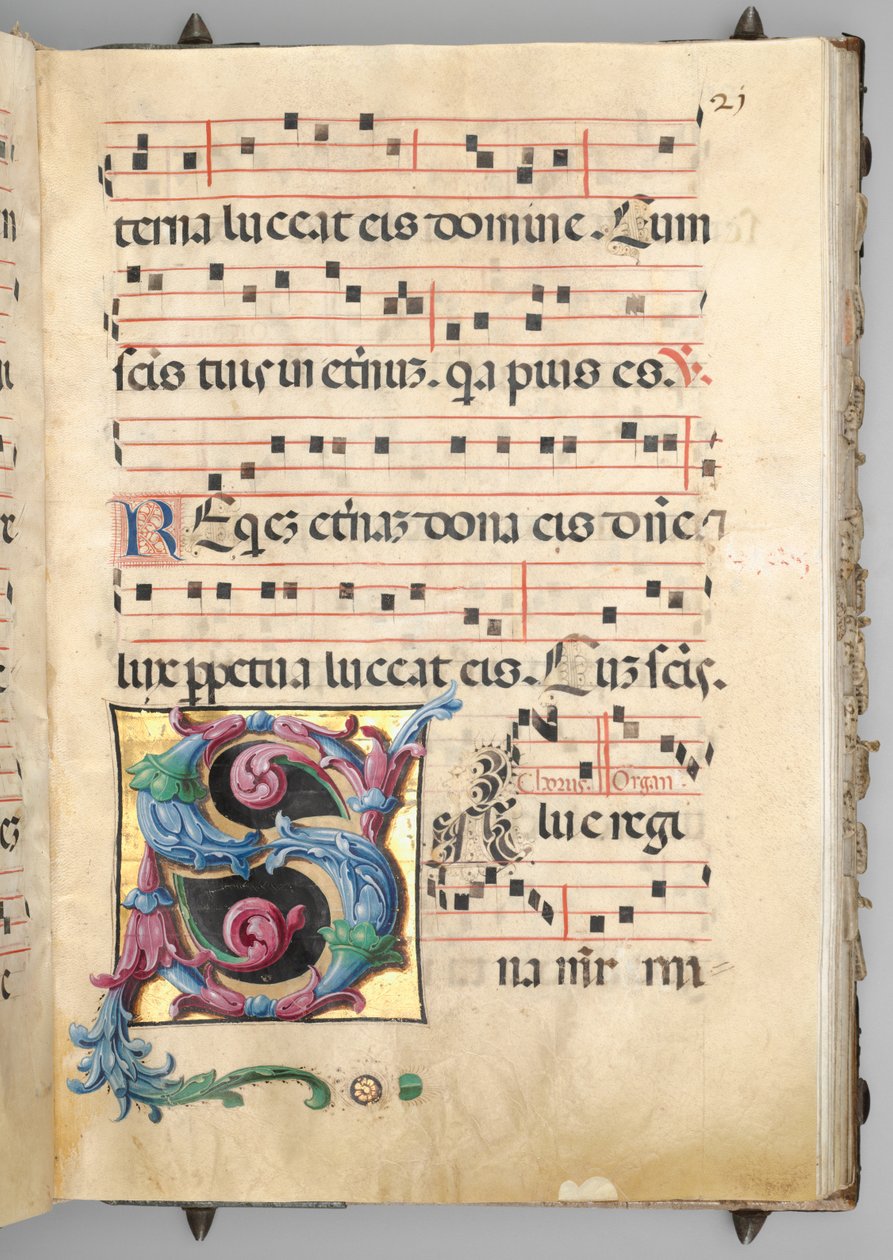 21
terna luceat eis domine. Cum
scis tuis in etnuz. qa pius es. V.
REqez etnaz dona eis dne. z
lux ppetua luceat eis. Cuz scis.
Chorus. Organ
SAlue regi
na mir mi=